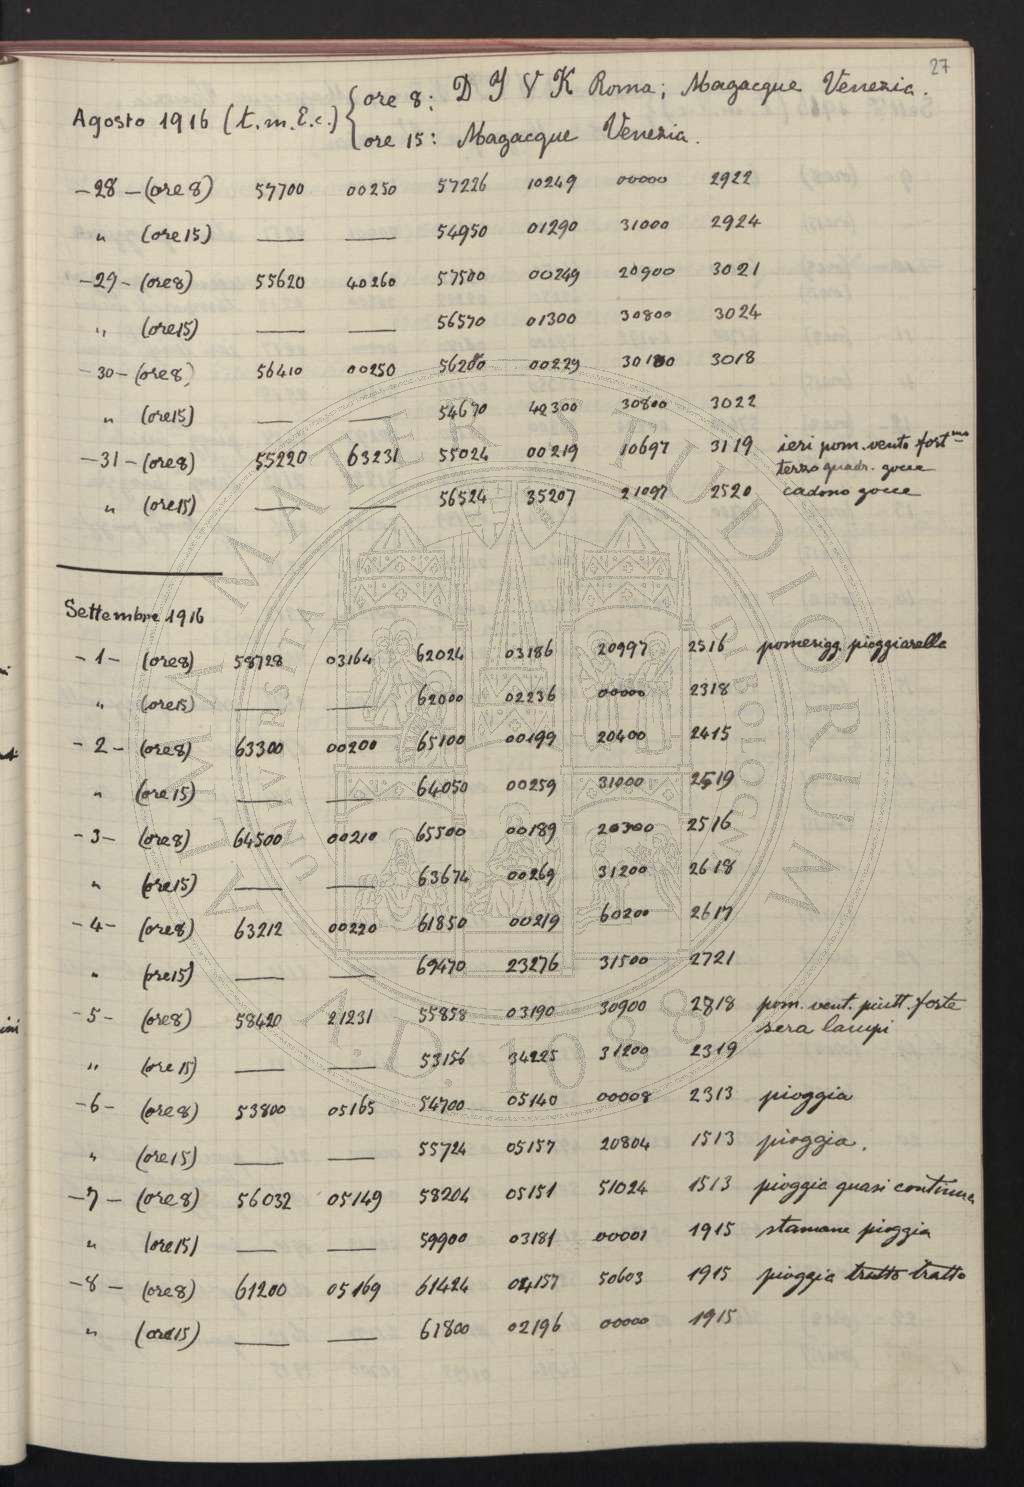 27
Agosto 1916 (t.m.E.c.) { ore 8: D I V K Roma; Magacque Venezia.
ore 15: Magacque Venezia.
-28- (ore 8) 57700 00250 57226 10249 00000 2922
" (ore 15) — — 54950 01290 31000 2924
-29- (ore 8) 55620 40260 57500 00249 20900 3021
" (ore 15) — — 56570 01300 30800 3024
-30- (ore 8) 56410 00250 56200 00229 30100 3018
" (ore 15) — — 54670 42300 30800 3022
-31- (ore 8) 55220 63231 55024 00219 10697 3119 ieri pom. vento fort.mo
terzo quadr. gocce
" (ore 15) — — 56524 35207 21097 2520 cadono gocce
Settembre 1916
-1- (ore 8) 58728 03164 62024 03186 20997 2516 pomerigg. pioggiarella
" (ore 15) — — 62000 02236 00000 2318
-2- (ore 8) 63300 00200 65100 00199 20400 2415
" (ore 15) — — 64050 00259 31000 2519
-3- (ore 8) 64500 00210 65500 00189 20300 2516
" (ore 15) — — 63674 00269 31200 2618
-4- (ore 8) 63212 00220 61850 00219 60200 2617
" (ore 15) — — 69470 23276 31500 2721
-5- (ore 8) 58420 21231 55858 03190 30900 2718 pom. vent. piutt. forte
sera lampi
" (ore 15) — — 53156 34225 31200 2319
-6- (ore 8) 53800 05165 54700 05140 00008 2313 pioggia
" (ore 15) — — 55724 05157 20804 1513 pioggia.
-7- (ore 8) 56032 05149 58204 05151 51024 1513 pioggia quasi continua
" (ore 15) — — 59900 03181 00001 1915 stamane pioggia
-8- (ore 8) 61200 05169 61424 04157 50603 1915 pioggia tratto tratto
" (ore 15) — — 61800 02196 00000 1915
ALMA MATER STUDIORUM
A.D. 1088